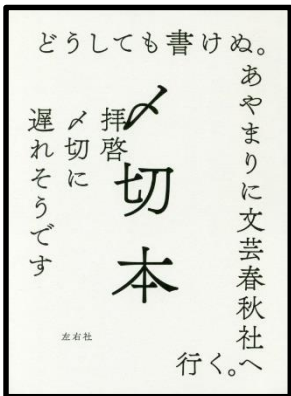 どうしても書けぬ。
あやまりに文芸春秋社へ
行く。
〆切本
拝啓
〆切に
遅れそうです
左右社